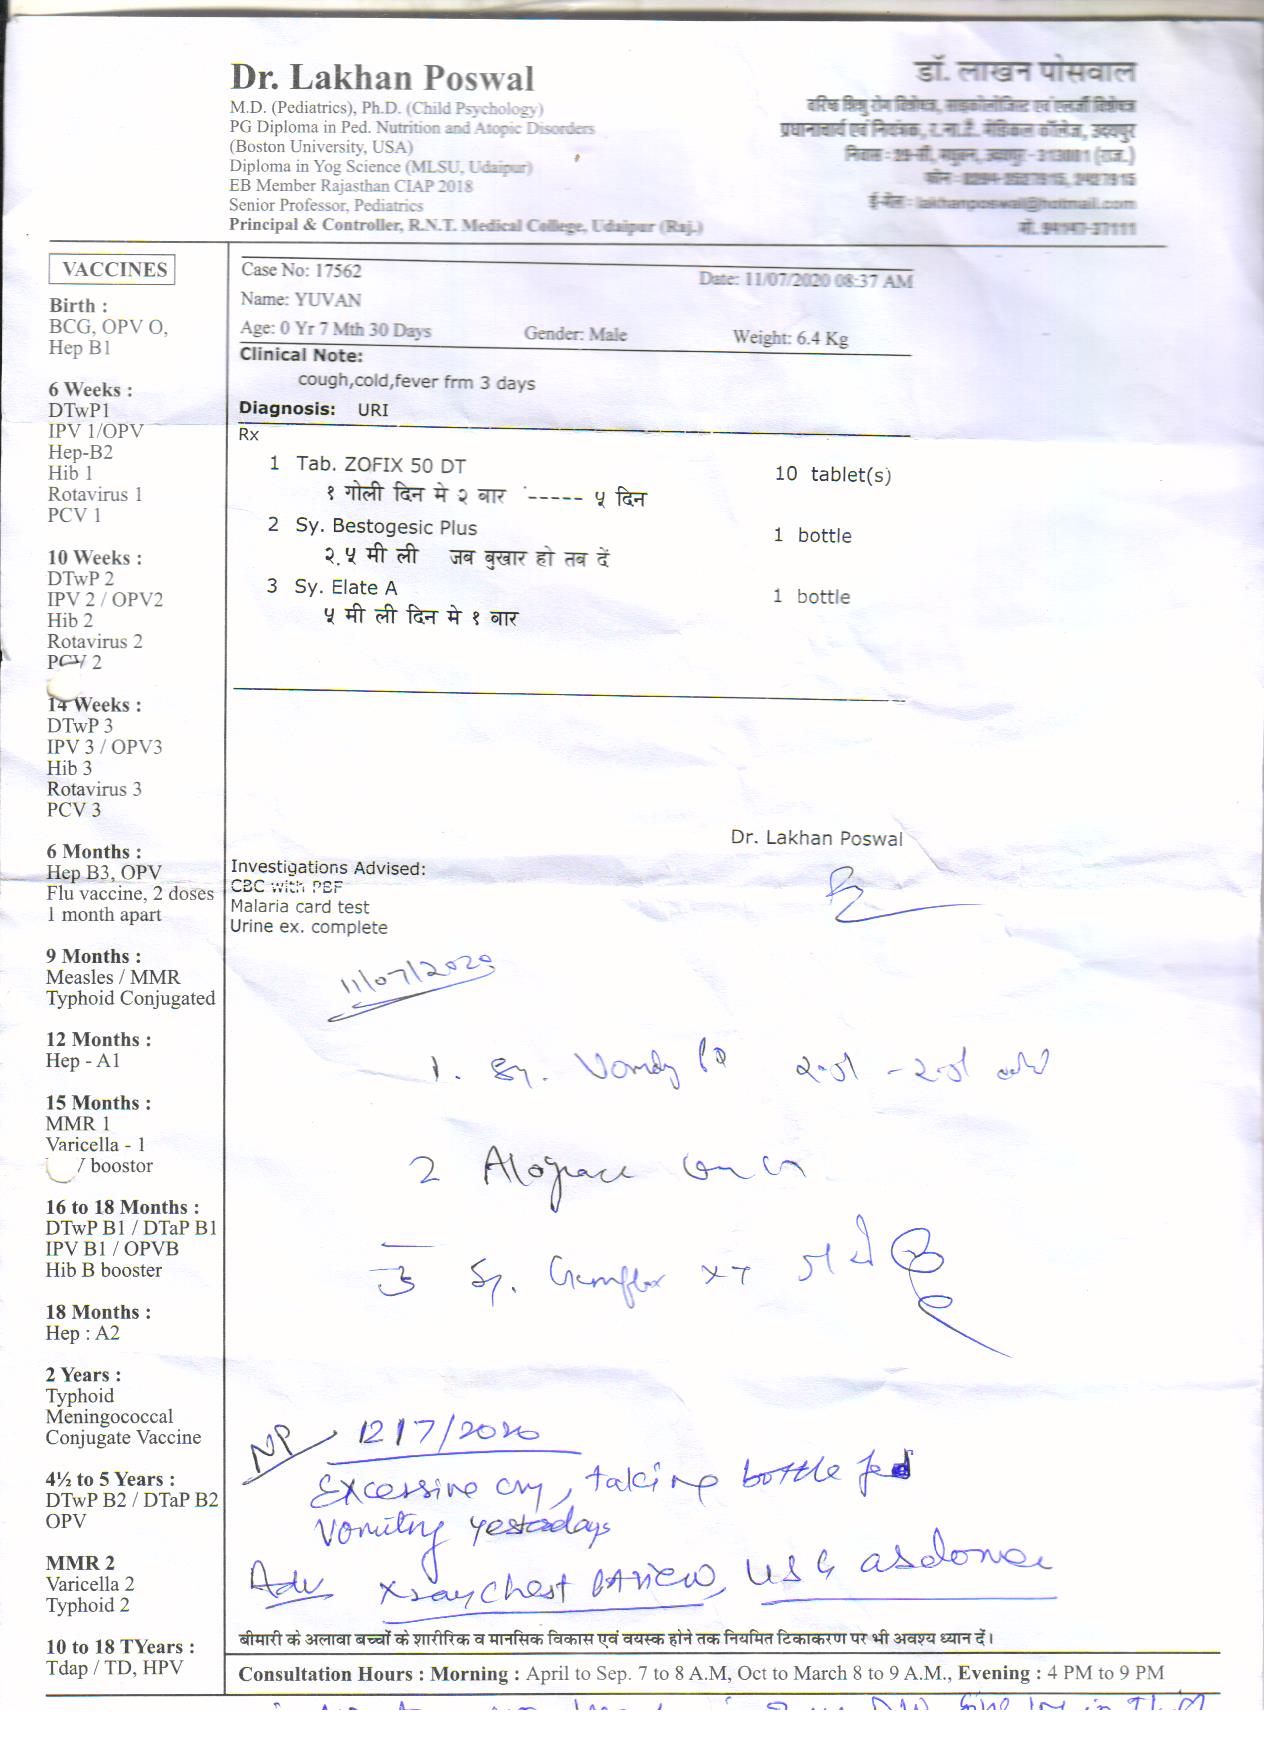 Dr. Lakhan Poswal
M.D. (Pediatrics), Ph.D. (Child Psychology)
PG Diploma in Ped. Nutrition and Atopic Disorders
(Boston University, USA)
Diploma in Yog Science (MLSU, Udaipur)
EB Member Rajasthan CIAP 2018
Senior Professor, Pediatrics
Principal & Controller, R.N.T. Medical College, Udaipur (Raj.)
डॉ. लाखन पोसवाल
वरिष्ठ शिशु रोग विशेषज्ञ, साइकोलोजिस्ट एवं एलर्जी विशेषज्ञ
प्रधानाचार्य एवं नियंत्रक, र.ना.टै. मेडिकल कॉलेज, उदयपुर
निवास : 29-सी, मधुबन, उदयपुर - 313001 (राज.)
फोन : 0294-
ई-मेल : lakhanposwal@hotmail.com
मो. 94147-37111
VACCINES
Birth :
BCG, OPV O,
Hep B1
6 Weeks :
DTwP1
IPV 1/OPV
Hep-B2
Hib 1
Rotavirus 1
PCV 1
10 Weeks :
DTwP 2
IPV 2 / OPV2
Hib 2
Rotavirus 2
PCV 2
14 Weeks :
DTwP 3
IPV 3 / OPV3
Hib 3
Rotavirus 3
PCV 3
6 Months :
Hep B3, OPV
Flu vaccine, 2 doses
1 month apart
9 Months :
Measles / MMR
Typhoid Conjugated
12 Months :
Hep - A1
15 Months :
MMR 1
Varicella - 1
/ boostor
16 to 18 Months :
DTwP B1 / DTaP B1
IPV B1 / OPVB
Hib B booster
18 Months :
Hep : A2
2 Years :
Typhoid
Meningococcal
Conjugate Vaccine
4½ to 5 Years :
DTwP B2 / DTaP B2
OPV
MMR 2
Varicella 2
Typhoid 2
10 to 18 TYears :
Tdap / TD, HPV
Case No: 17562 Date: 11/07/2020 08:37 AM
Name: YUVAN
Age: 0 Yr 7 Mth 30 Days Gender: Male Weight: 6.4 Kg
Clinical Note:
cough,cold,fever frm 3 days
Diagnosis: URI
Rx
1 Tab. ZOFIX 50 DT 10 tablet(s)
१ गोली दिन मे २ बार ----- ५ दिन
2 Sy. Bestogesic Plus 1 bottle
२.५ मी ली जब बुखार हो तब दें
3 Sy. Elate A 1 bottle
५ मी ली दिन मे १ बार
Dr. Lakhan Poswal
Investigations Advised:
CBC with PBF
Malaria card test
Urine ex. complete
11/07/2020
1. Sy.
2
3 Sy.
NP 12/7/2020
Excessive cry, taking bottle fed
Vomiting yesterdays
Adv Xray chest PA view, USG abdomen
बीमारी के अलावा बच्चों के शारीरिक व मानसिक विकास एवं वयस्क होने तक नियमित टिकाकरण पर भी अवश्य ध्यान दें।
Consultation Hours : Morning : April to Sep. 7 to 8 A.M, Oct to March 8 to 9 A.M., Evening : 4 PM to 9 PM